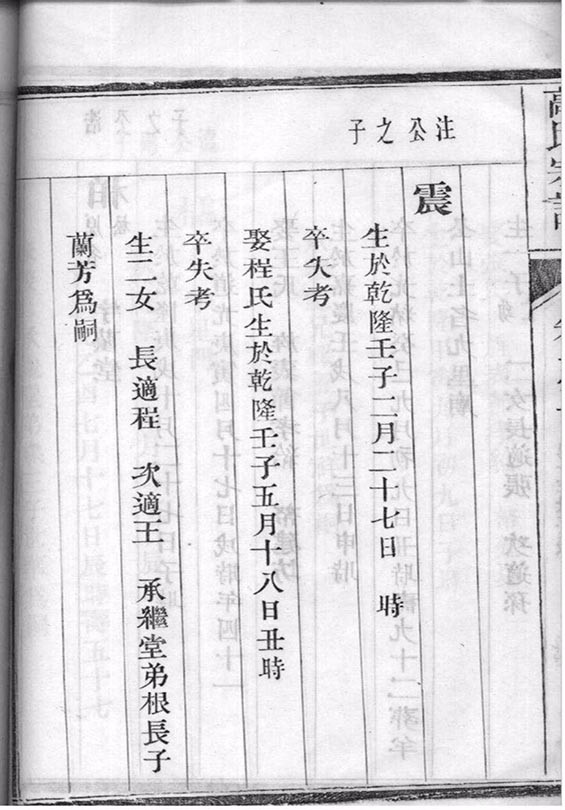 高氏宗譜
注公之子
震
生於乾隆壬子二月二十七日 時
卒失考
娶程氏生於乾隆壬子五月十八日丑時
卒失考
生二女 長適程 次適王 承繼堂弟根長子
蘭芳爲嗣